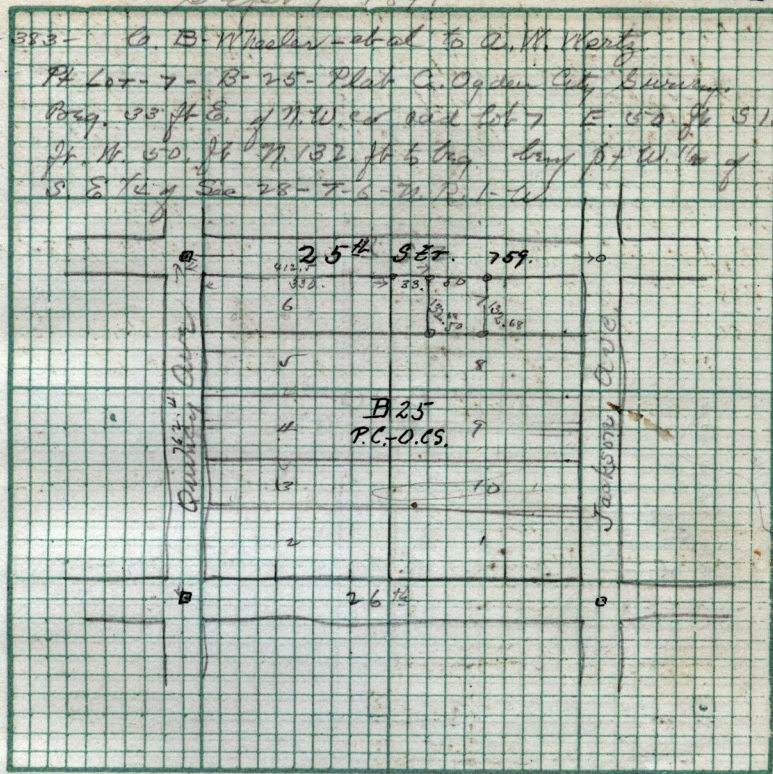 383- C. B. Wheeler - et al to A. W. Wertz
Pt Lot - 7 - B-25 - Plat C. Ogden City Survey.
Beg. 33 ft E. of N.W. cor said lot 7 E. 50 ft S 1
ft. W. 50. ft N. 132. ft to beg. being pt W. 1/2 of
S. E 1/4 of Sec 28 - T-6-N. R. 1-W
25th Str. 759.
412.5
330. 33. 50
6
7
132.
50
132.68
5
8
B 25
P.C.-O.CS.
4
9
3
10
2
1
Quincy Ave
762.4
Jackson Ave.
26th